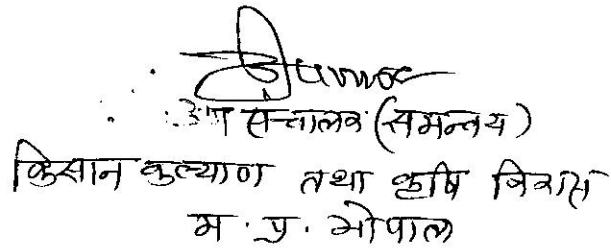 उप संचालक (समन्वय)
किसान कल्याण तथा कृषि विकास
म. प्र. भोपाल